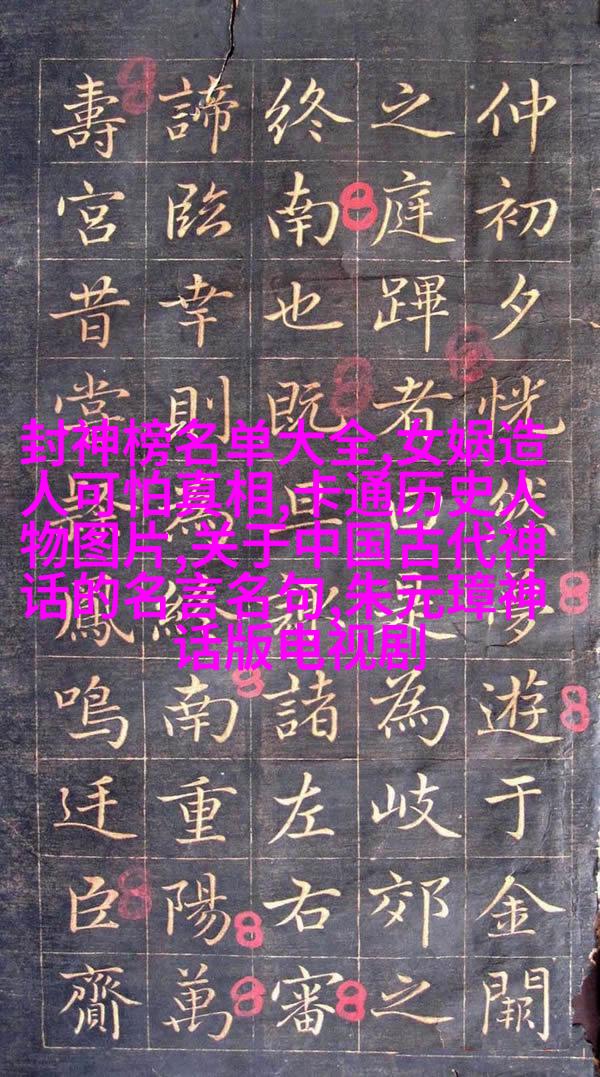 仲初夕恍然夢遊于金闕
之庭蹕者為岐郊之
終南也既旦諸左右審
諦臨幸則為終南重陽萬
壽宮昔鳳鳴迋臣齎
封神榜名单大全,女娲造
人可怕真相,卡通历史人
物图片,关于中国古代神
话的名言名句,朱元璋神
话版电视剧